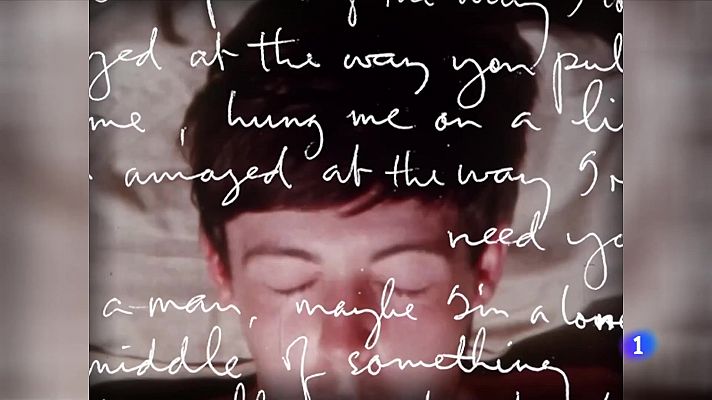 the way I
zed at the way you pul
me, hung me on a li
amazed at the way I
need yo
a man, maybe I'm a lone
1
middle of something